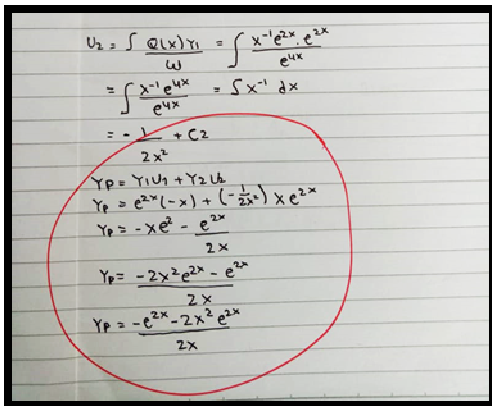 U2 = ∫ Q(x)Y1 / W = ∫ x⁻¹e²ˣ . e²ˣ / e⁴ˣ
= ∫ x⁻¹e⁴ˣ / e⁴ˣ = ∫x⁻¹ dx
= - 1 / 2x² + C2
YP = Y1U1 + Y2U2
YP = e²ˣ(-x) + (-1/2x²) x e²ˣ
YP = -xe² - e²ˣ / 2x
YP = -2x²e²ˣ - e²ˣ / 2x
YP = -e²ˣ - 2x²e²ˣ / 2x